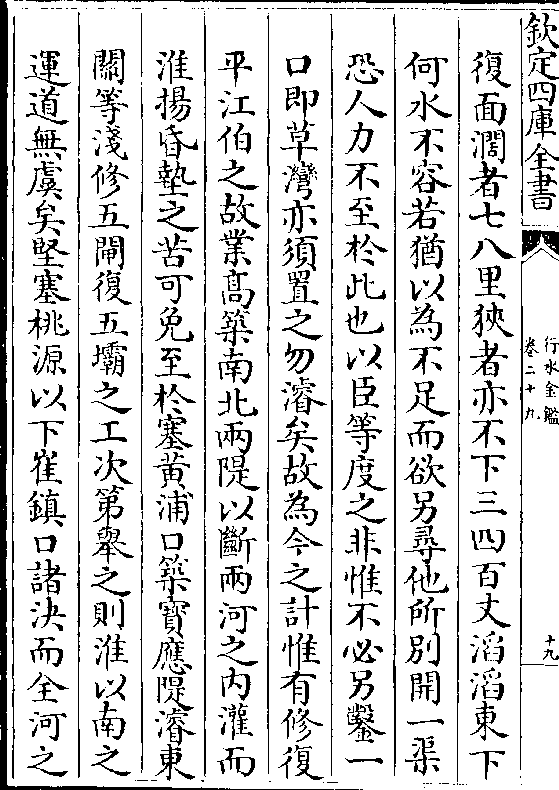 欽定四庫全書
行水金鑑
卷二十九
十九
復面濶者七八里狹者亦不下三四百丈滔滔東下
何水不容若猶以為不足而欲另尋他所別開一渠
恐人力不至於此也以臣等度之非惟不必另鑿一
口即草灣亦須置之勿濬矣故為今之計惟有修復
平江伯之故業髙築南北兩隄以斷兩河之内灌而
淮揚昏墊之苦可免至於塞黄浦口築寶應隄濬東
關等淺修五閘復五壩之工次第舉之則淮以南之
運道無虞矣堅塞桃源以下崔鎮口諸決而全河之